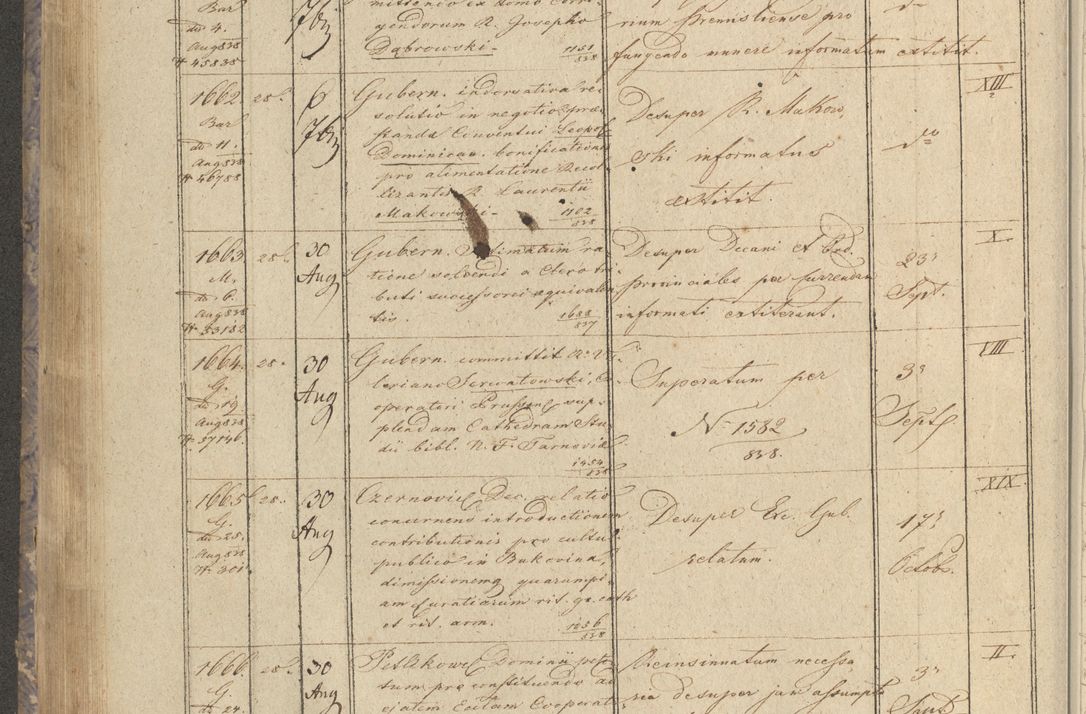 Bar
do 4.
Aug 838
# 45835
7br
gendorum R. Josepho
Dąbrowski -
1151
838
rium Premisliense pro
fungendo munere informatum extitit.
1662
Bar
do 11.
Aug 838
# 46788
28.
6
7br
Gubern. indorsativa re-
solutio in negotio præ-
standa Conventui Leopol.
Dominican. bonificationis
pro alimentatione Recol-
lizantis R. Laurentii
Makowski -
1102
838
Desuper R. Makow-
ski informatus
extitit.
dto
XIII
2
1663
M.
do 6.
Aug 838
# 33182
28.
30
Aug
Gubern. intimatum ra-
tione solvendi a Clero tri-
buti successorei equivalen-
tis.
1688
837
Desuper Decani et Ord.
provinciales per currendam
informati extiterunt.
23
Sept.
X.
1664.
G.
do 19
Aug 838
# 37146.
28.
30
Aug
Gubern. committit R. Va-
leriano Serwatowski, Co-
operatori sup-
plendam Cathedram Stu-
dii bibl. N. F. Tarnoviæ
1454
838
Superatum per
N 1582
838.
3
Sept
XVIII
1665
G.
do 25.
Aug 838
# 301
28.
30
Aug
Czernovic. Dec. relatio
concernens introductionem
contributionis pro cultu
publico in Bukovina,
dimissionemq quarumpi-
am Curatiarum rit. gr. cath
et rit. arm.
1256
838
Desuper Exc. Gub.
relatum.
17
Octobr.
XIX.
1666.
G.
do 24.
28.
30
Aug
Petlikowc. Dominii peti-
tum pro constituendo ad
Cooperat
Reinsinuatum necessa-
ria desuper jam assumpta
3
Sept
II.